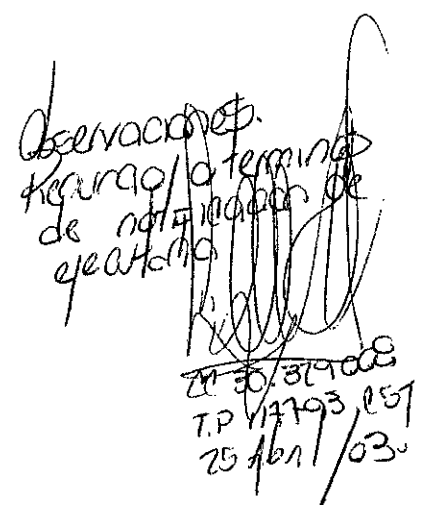 Observaciones.
Renuncio a terminos
de notificacion de
ejecutoria
CC 30.329.008
T.P 117793 CSJ
25 Abr / 03.